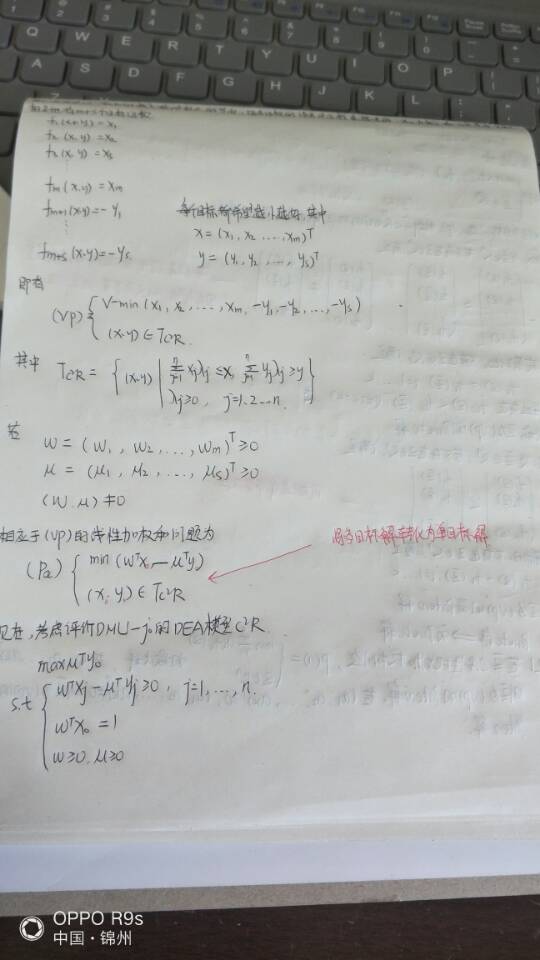 f₁(x,y) = x₁
f₂(x,y) = x₂
f₃(x,y) = x₃
⋮
fm(x,y) = xm
fm+1(x,y) = -y₁
⋮
fm+s(x,y) = -ys
每个目标都希望越小越好,其中
x = (x₁, x₂, ..., xm)ᵀ
y = (y₁, y₂, ..., ys)ᵀ
即有
(VP) { V-min (x₁, x₂, ..., xm, -y₁, -y₂, ..., -ys)
(x,y) ∈ Tc²R.
其中 Tc²R = { (x,y) | Σⁿⱼ₌₁ xⱼλⱼ ≤ x, Σⁿⱼ₌₁ yⱼλⱼ ≥ y
λⱼ ≥ 0, j=1,2...n. }
若
w = (w₁, w₂, ..., wm)ᵀ ≥ 0
μ = (μ₁, μ₂, ..., μs)ᵀ ≥ 0
(w, μ) ≠ 0
相应于(VP)的线性加权和问题为
将多目标解转化为单目标解
min (wᵀx - μᵀy)
(x, y) ∈ Tc²R
现在,考虑评价DMU-j₀的DEA模型C²R
max μᵀy₀
s.t { wᵀxⱼ - μᵀyⱼ ≥ 0, j=1, ..., n.
wᵀx₀ = 1
w ≥ 0, μ ≥ 0
OPPO R9s
中国·锦州